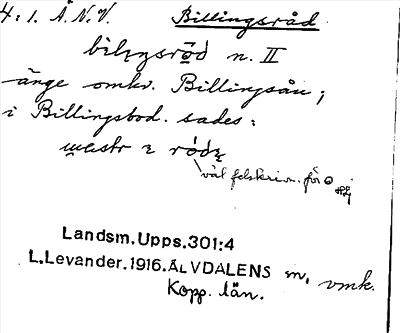 4:1. Å.N.V. Billingsråd
bilıŋsrōd n. II
änge omkr. Billingsån;
i Billingsbod. sades:
wastr ı ródę
väl felskrivn. för o
Landsm.Upps.301:4
L.Levander.1916.ÄLVDALENS m, vmk.
Kopp. län.